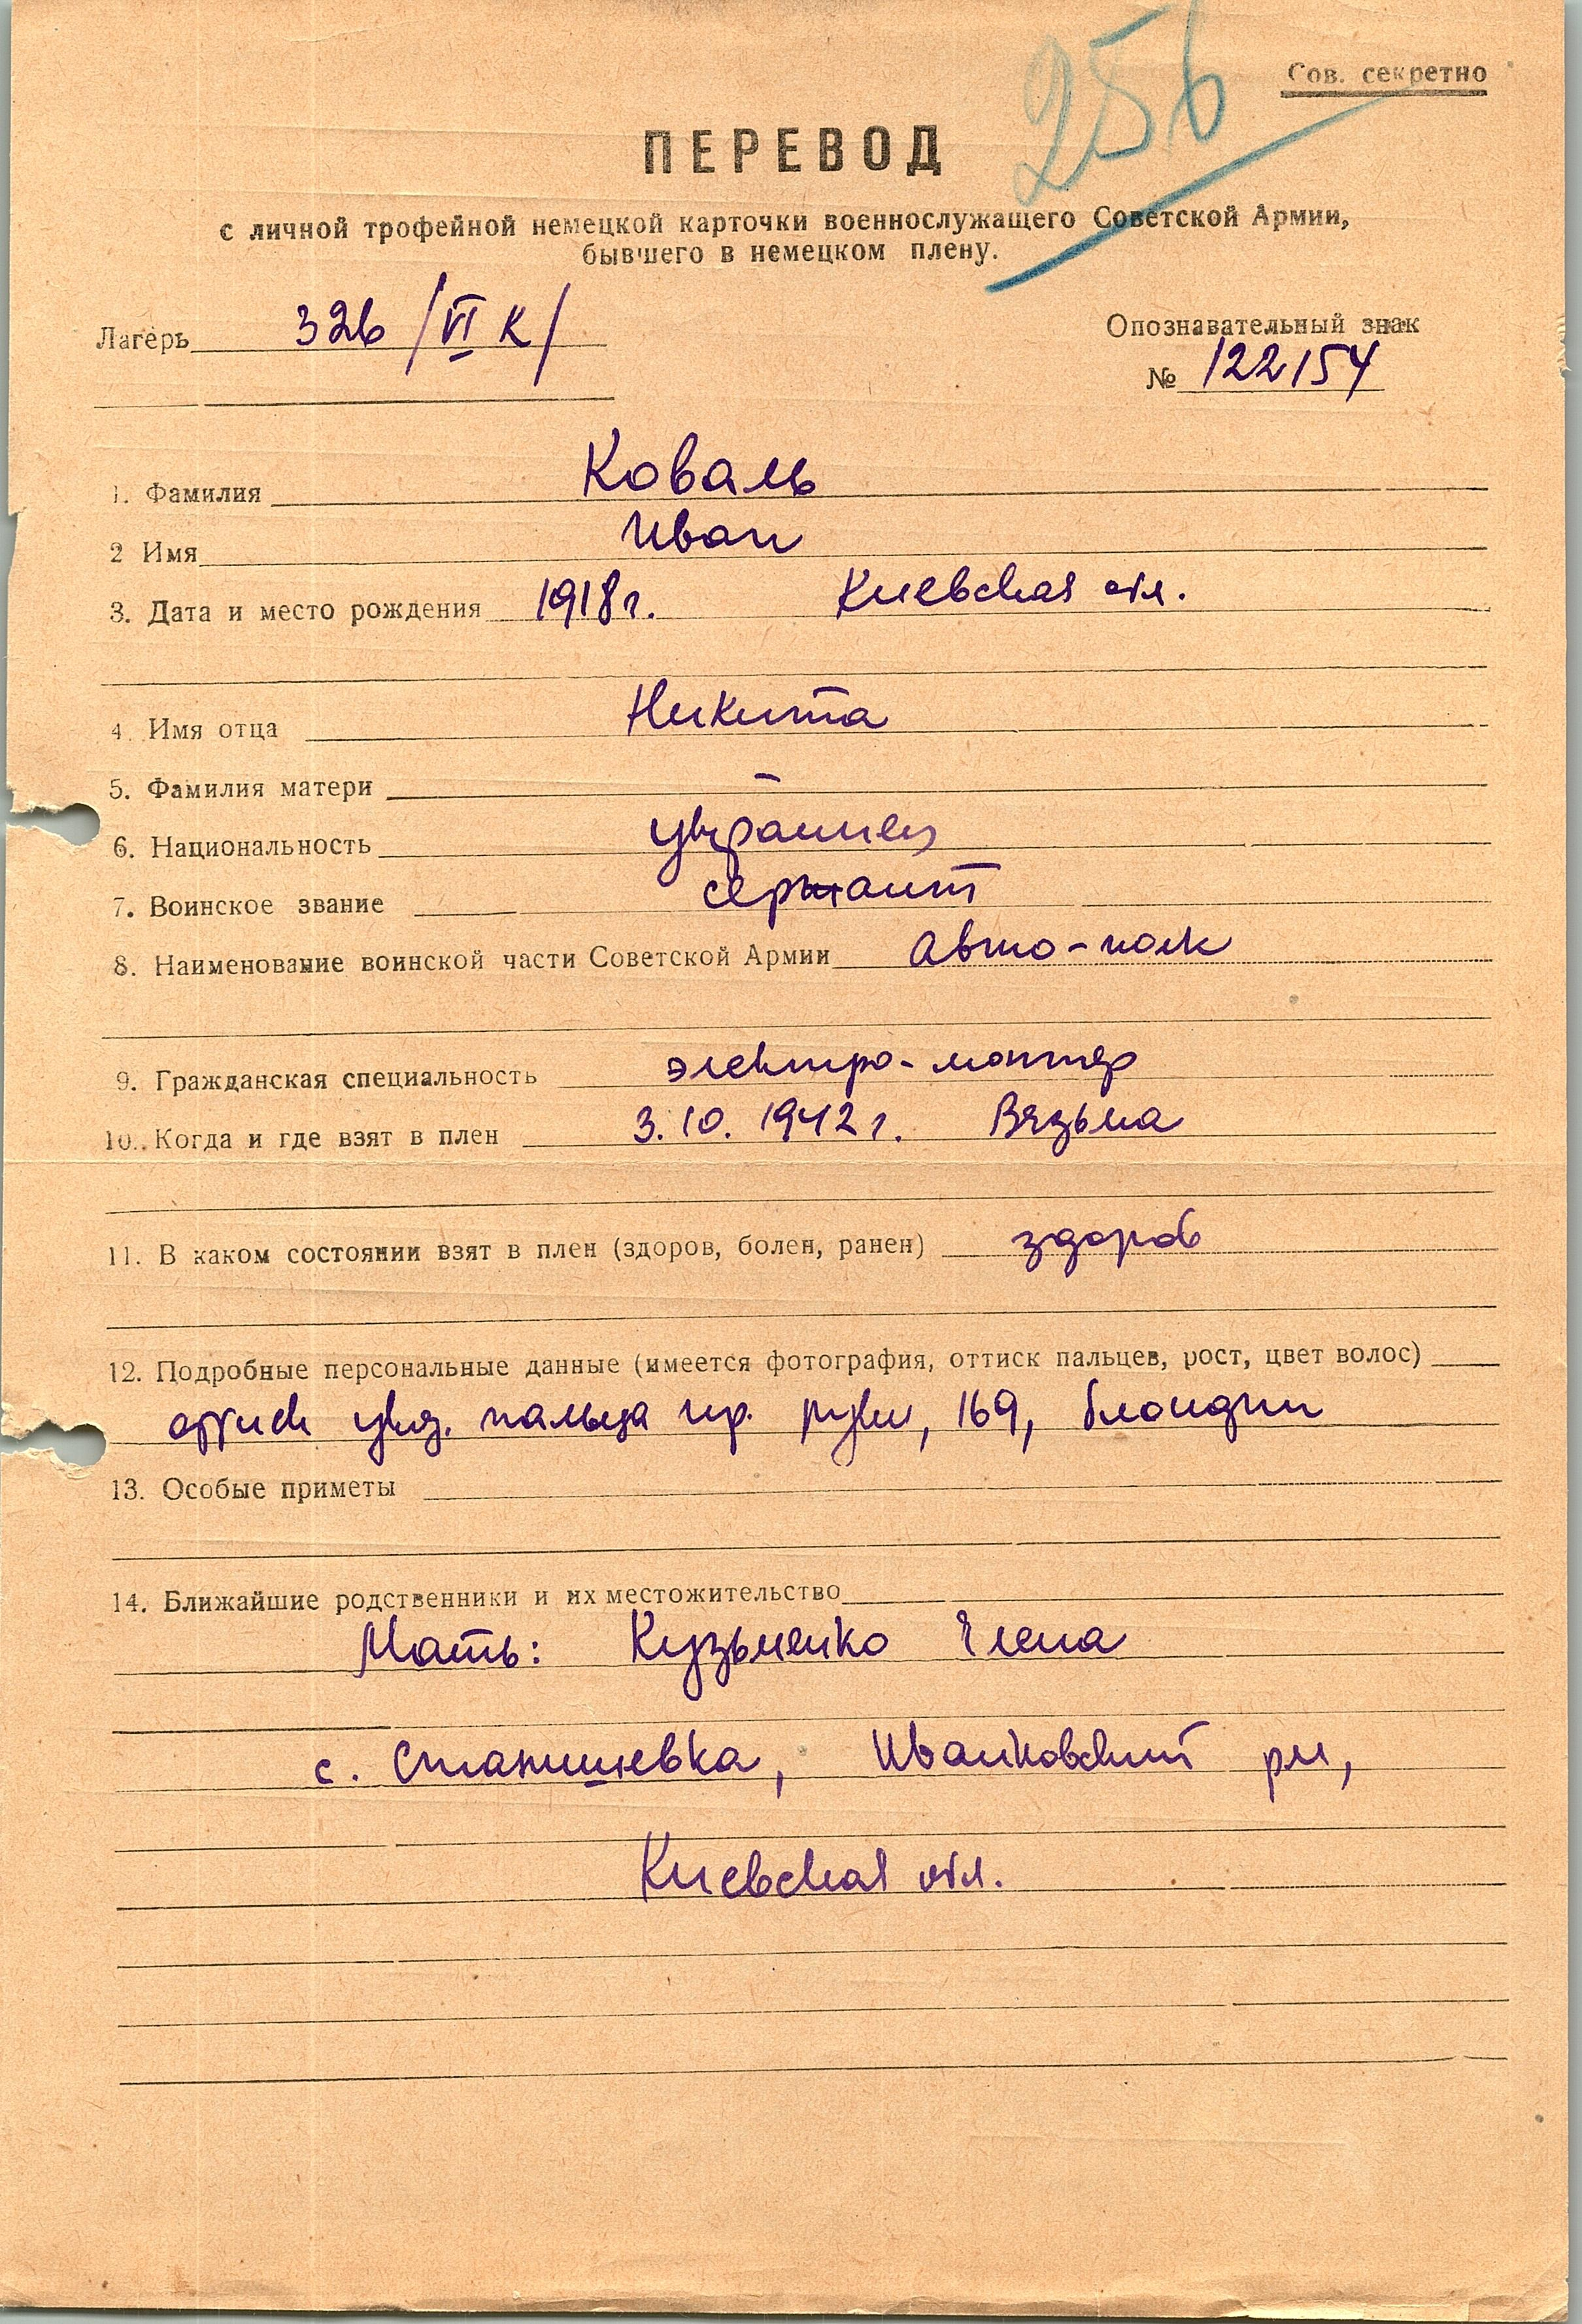 256
Сов. секретно
ПЕРЕВОД
с личной трофейной немецкой карточки военнослужащего Советской Армии,
бывшего в немецком плену.
Лагерь 326 /VI К/
Опознавательный знак
№ 122154
1. Фамилия Коваль
2 Имя Иван
3. Дата и место рождения 1918 г. Киевская обл.
4. Имя отца Никита
5. Фамилия матери —
6. Национальность украинец
7. Воинское звание сержант
8. Наименование воинской части Советской Армии Авто-полк
9. Гражданская специальность электро-монтер
10. Когда и где взят в плен 3.10.1942 г. Вязьма
11. В каком состоянии взят в плен (здоров, болен, ранен) здоров
12. Подробные персональные данные (имеется фотография, оттиск пальцев, рост, цвет волос)
оттиск указ. пальца пр. руки, 169, блондин
13. Особые приметы
14. Ближайшие родственники и их местожительство
Мать: Кузьменко Елена
с. Станишевка, Иванковский рн,
Киевская обл.